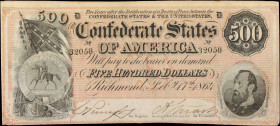 Two Years after the Ratification of a Treaty of Peace between the
CONFEDERATE STATES & THE UNITED STATES,
500 D D
Confederate States 500
No 32050 32050
OF AMERICA
Will pay to the bearer on demand
FIVE HUNDRED DOLLARS
Richmond, Feb. 17th 1864